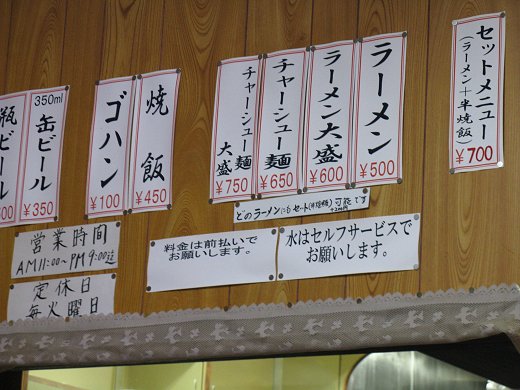 セットメニュー
(ラーメン+半焼飯)
¥700
ラーメン
¥500
ラーメン大盛
¥600
チャーシュー麺
¥650
チャーシュー麺
大盛
¥750
焼飯
¥450
ゴハン
¥100
350ml
缶ビール
¥350
瓶ビール
どのラーメンにもセット(半焼飯)可能です
+200円
水はセルフサービスで
お願いします。
料金は前払いで
お願いします。
営業時間
AM11:00~PM9:00迄
定休日
毎火曜日